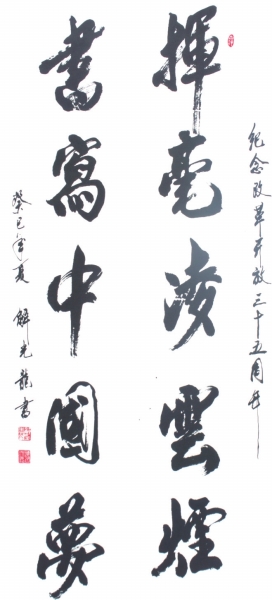 纪念改革开放三十五周年
揮毫凌雲煙
書寫中國夢
癸巳年夏 解光龍書